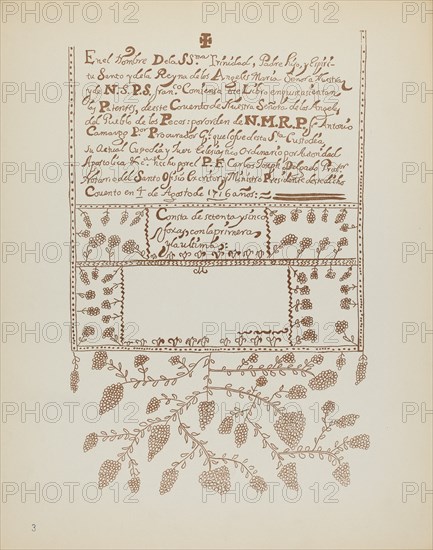 En el Nombre De la SSma Trinidad, Padre Hijo, y Espiri-
tu Santo y de la Reyna de los Angeles Maria Señora Nuestra
y de N.S.P.S. Franco Comiensa este Libro en qui se asientan
de este Convento de Nuestra Señora de los Angeles
del Pueblo de los Pecos por orden de N.M.R.P. fr Antonio
Camargo Por Procurador Gl que fue de esta Sta Custodia
Su Actual Custodio y Juez Eclesiastico Ordinario por Authoridad
Apostolica &c Hecho por el P. F. Carlos Joseph Delgado Predor
Notorio del Santo Ofisio Escritor y Ministro Presidente de este dicho
Convento en 4 de Agosto de 1716 años:
Consta de setenta y sinco
foxas con la primera
y la ultima:
3
PHOTO 12